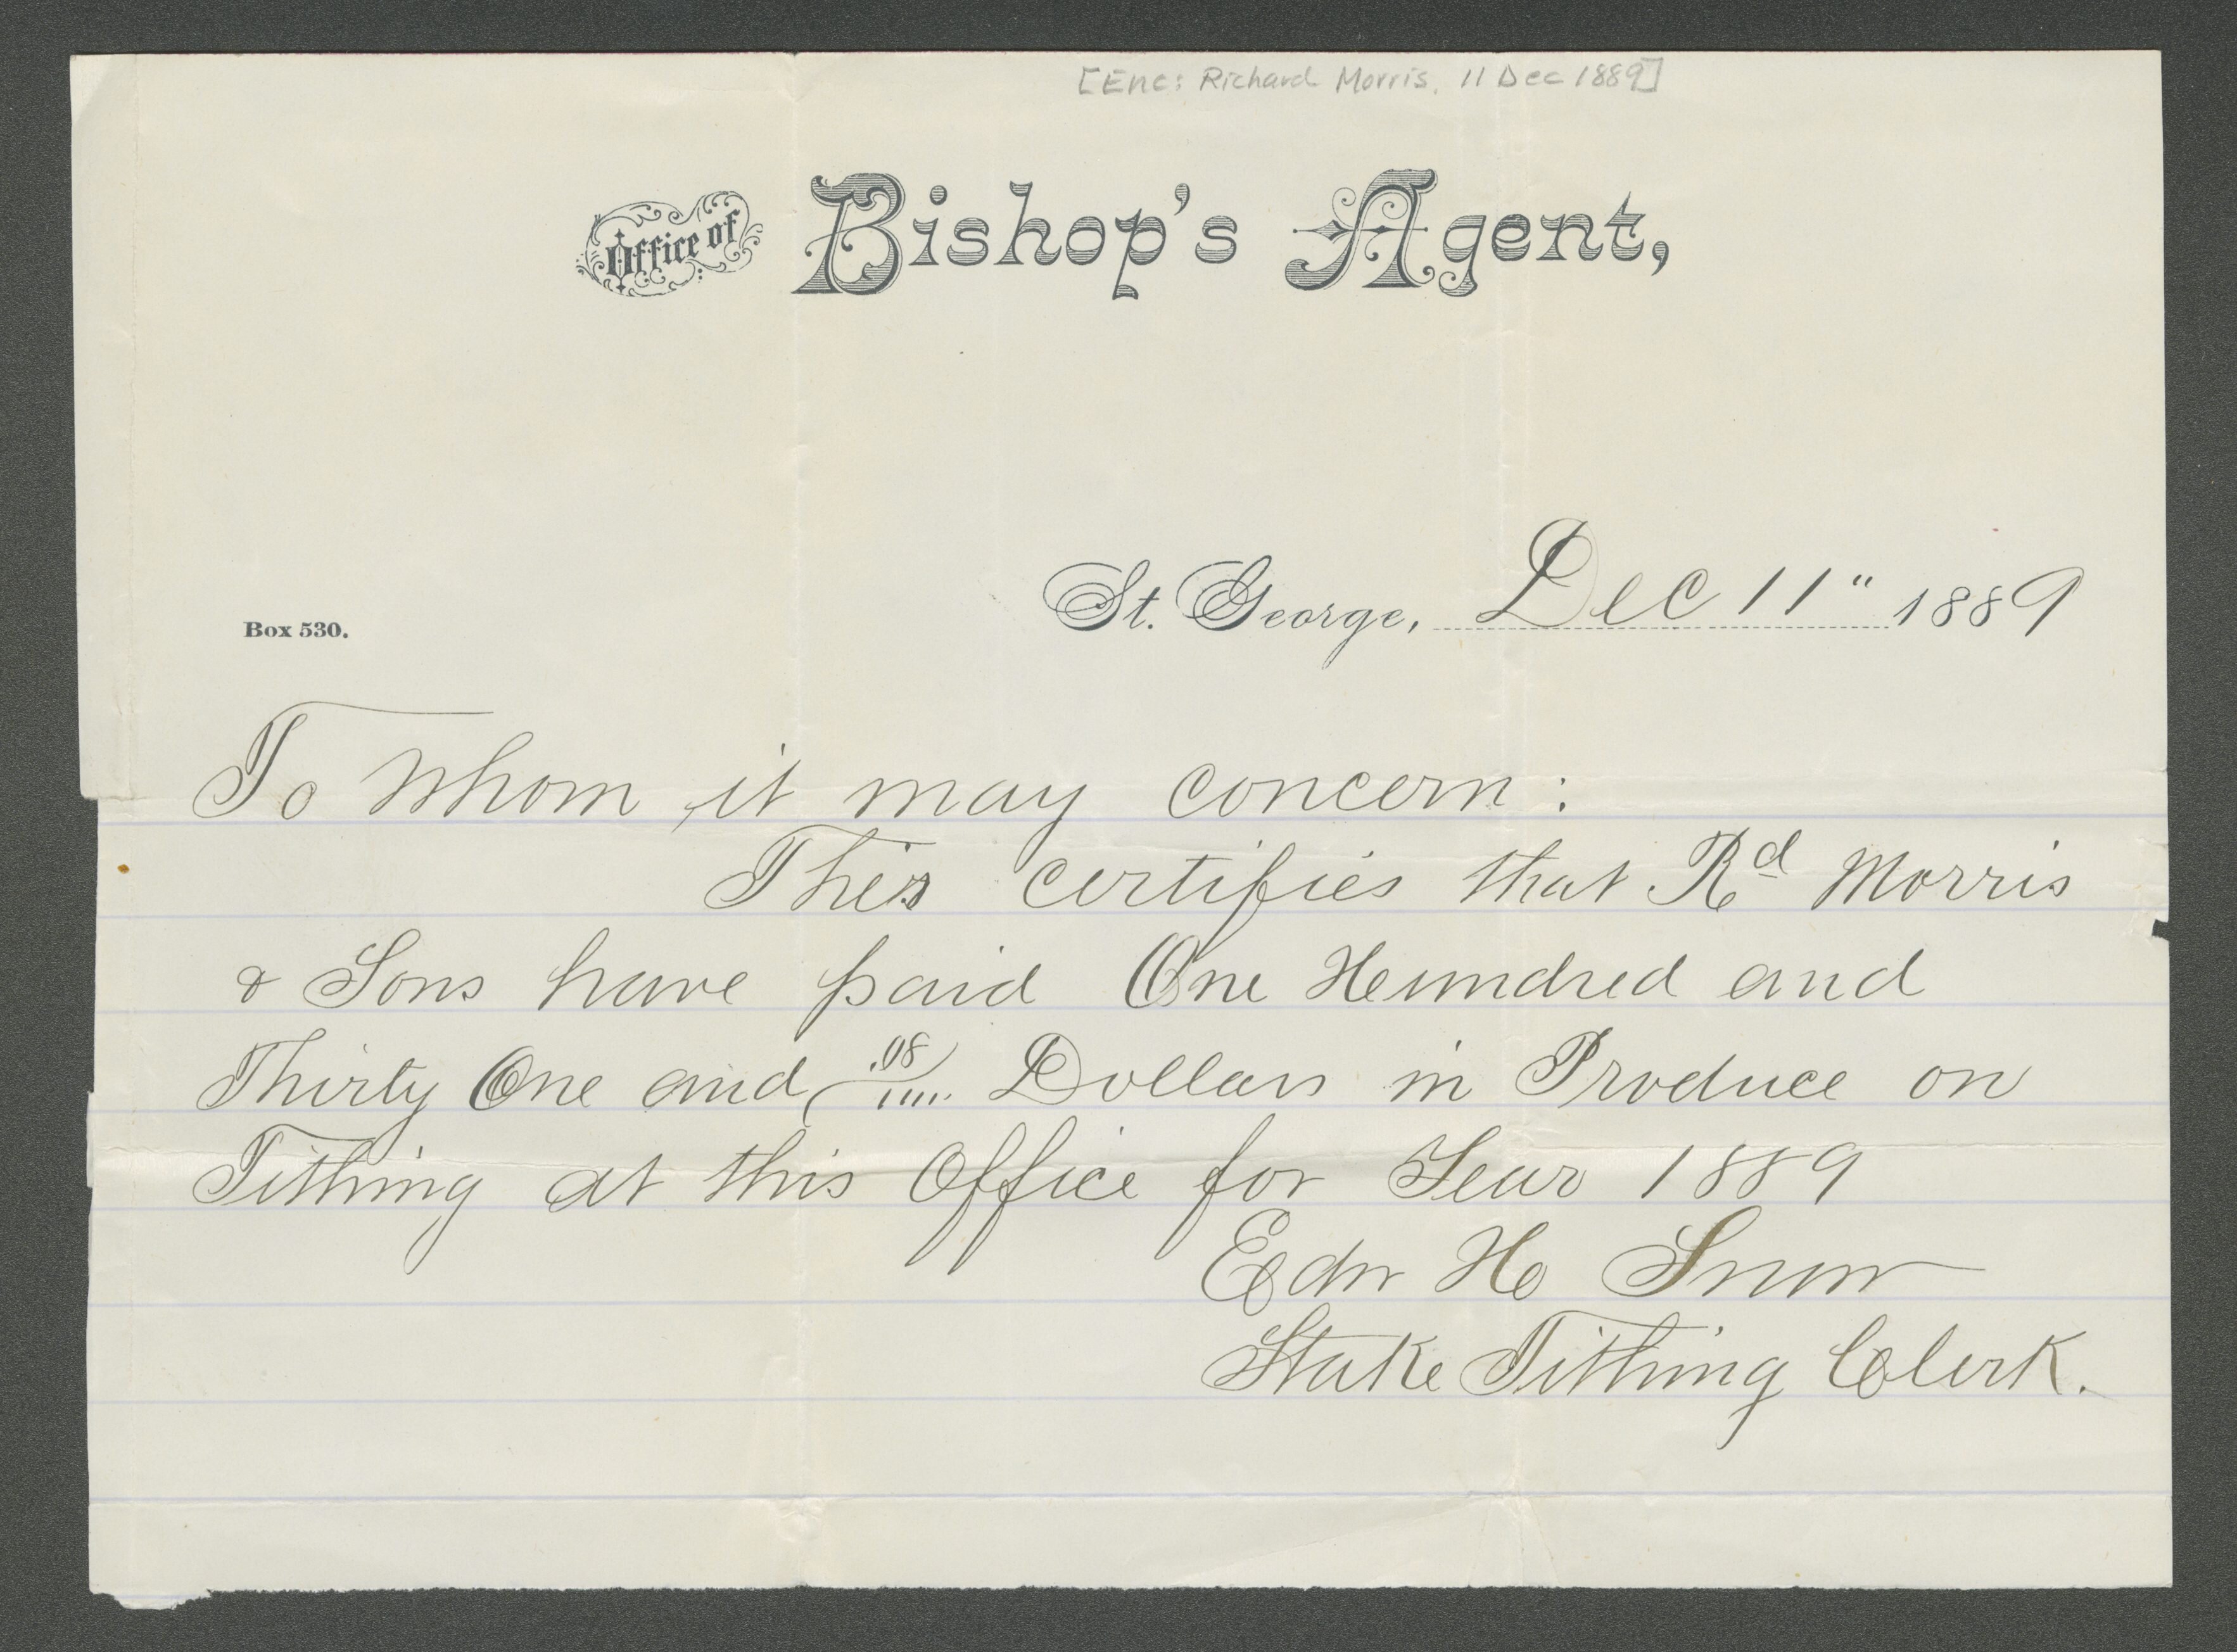 [Enc: Richard Morris, 11 Dec 1889]
Office of Bishop's Agent,
Box 530.
St. George, Dec 11" 1889
To Whom it may concern:
This certifies that Rd Morris
& Sons have paid One Hundred and
Thirty One and .08/.... Dollars in Produce on
Tithing at this Office for Year 1889
Edw H Snow
Stake Tithing Clerk.